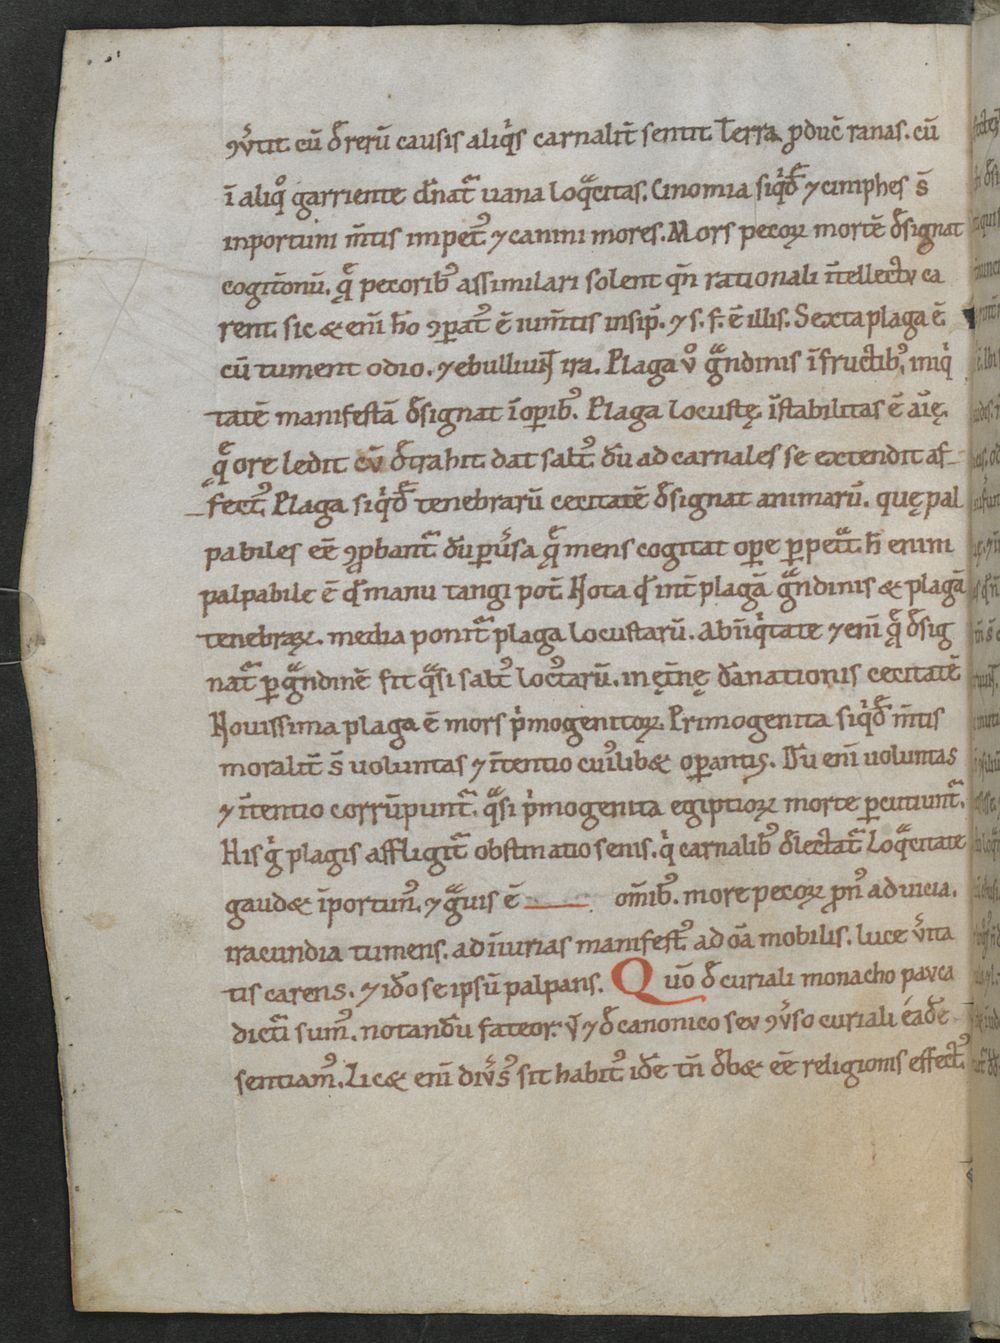 ꝯv̾tit cū d̾ rerū causis aliqͥs carnalit̄ sentit. Terra ꝓduc̄ ranas. cū
ī aliqͦ garriente dn̄at᷑ uana loqͣcitas. Cinomia siqͥdē ⁊ cimphes s̄
inportuni m̄tis impetꝰ ⁊ canini mores. Mors pecoꝝ mortē d̾signat
cogitōnū. qͣ pecoribꝰ assimilari solent qn̄ rationali ītellectu ca
rent. sic & eni̅ h̄o ꝯparatꝰ ē ium̄tis insip̄. ⁊ s. f. ē illis. Sexta plaga ē
cū tument odio. ⁊ ebulliunt ira. Plaga v̊ gͣndinis ī fructibꝰ iniqͥ
tatē manifestā d̾signat ī oꝑibꝰ. Plaga locustę īstabilitas ē aīę.
qͣ ore ledit cū d̾trahit. dat saltꝰ dū ad carnales se extendit af
fectꝰ. Plaga siqͥdē tenebrarū cecitatē d̾signat animarū. quę pal
pabiles eē ꝯꝓbant᷑ dū ꝑv̾sa qͣ mens cogitat oꝑe ꝑpetͣt. h̄ enim
palpabile ē qd̾ manu tangi pot̄. Nota qd̾ int̄ plagā gͣndinis & plagā
tenebraꝝ. media ponit᷑ plaga locustarū. Ab iniqͥtate ⁊ enī qͣ d̾sig
nat᷑ ꝑ gͣndinē fit qͣsi saltꝰ locꝰtarū. in ęt̄nę dānationis cecitatē
Nouissima plaga ē mors pͥmogenitoꝝ. Primogenita siqͥdē m̄tis
moralit̄ s̄ uoluntas ⁊ ītentio cuiꝰlib& oꝑantis. Dū enī uoluntas
⁊ ītentio corrūpunt᷑. qͣsi pͥmogenita egiptioꝝ morte ꝑcutiunt᷑.
His gͥ plagis affligit᷑ obstinatio senis. qͥ carnalibꝰ d̾lectat᷑. Loqͣcitate
gaud& īportunꝰ. ⁊ gͣuis ē om̄ibꝰ. more pecoꝝ ꝓnꝰ ad uicia.
iracundia tumens. ad īiurias manifestꝰ ad oīa mobilis. luce v̾ita
tis carens. ⁊ ido se ipsū palpans. Quō d̾ curiali monacho pauca
dicta sumꝰ. notandū fateor. ut ⁊ d̾ canonico seu ꝯv̾so curiali éadē
sentiamꝰ. Lic& enī div̾sꝰ sit habitꝰ idē tn̄ d̾b& eē religionis effectꝰ